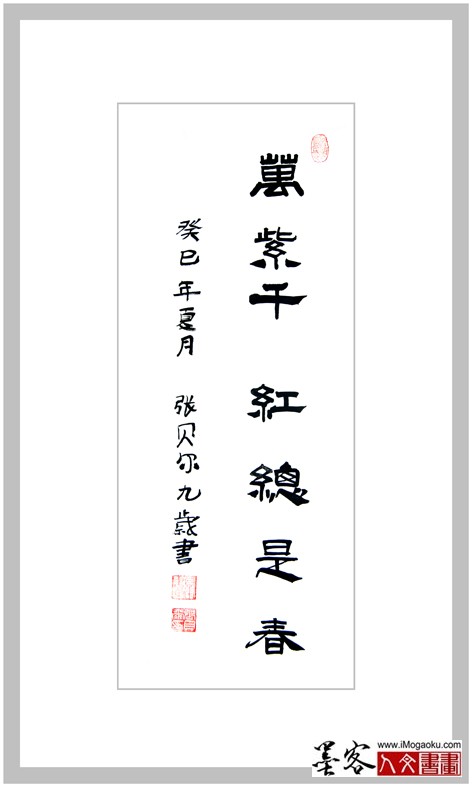 萬紫千紅總是春
癸巳年夏月 张贝尔九歲書
墨客
www.iMogaoku.com
人文書畫